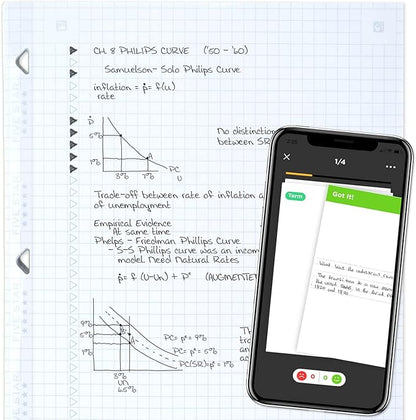 CH. 8 PHILIPS CURVE ('50 - '60)
Samuelson- Solo Philips Curve
inflation = ṗ = f(u)
rate
ṗ
5%
A
1%
3% 7%
PC
u
No distinction
between SR
Trade-off between rate of inflation a
of unemployment
Empirical Evidence
At same time
Phelps - Friedman Phillips Curve
- S-S Phillips curve was an incom
model Need Natural Rates
ṗ = f (U-Un) + Pᵉ (AUGMENTE
9%
5%
1%
A
3% Un
6.5%
PC= pᵉ = 9%
PC= pᵉ = 5%
PC(SR)=pᵉ = 1%
Th
tra
an
ac
1/4
Term
Got It!
What was the
The transition to a new
0 0